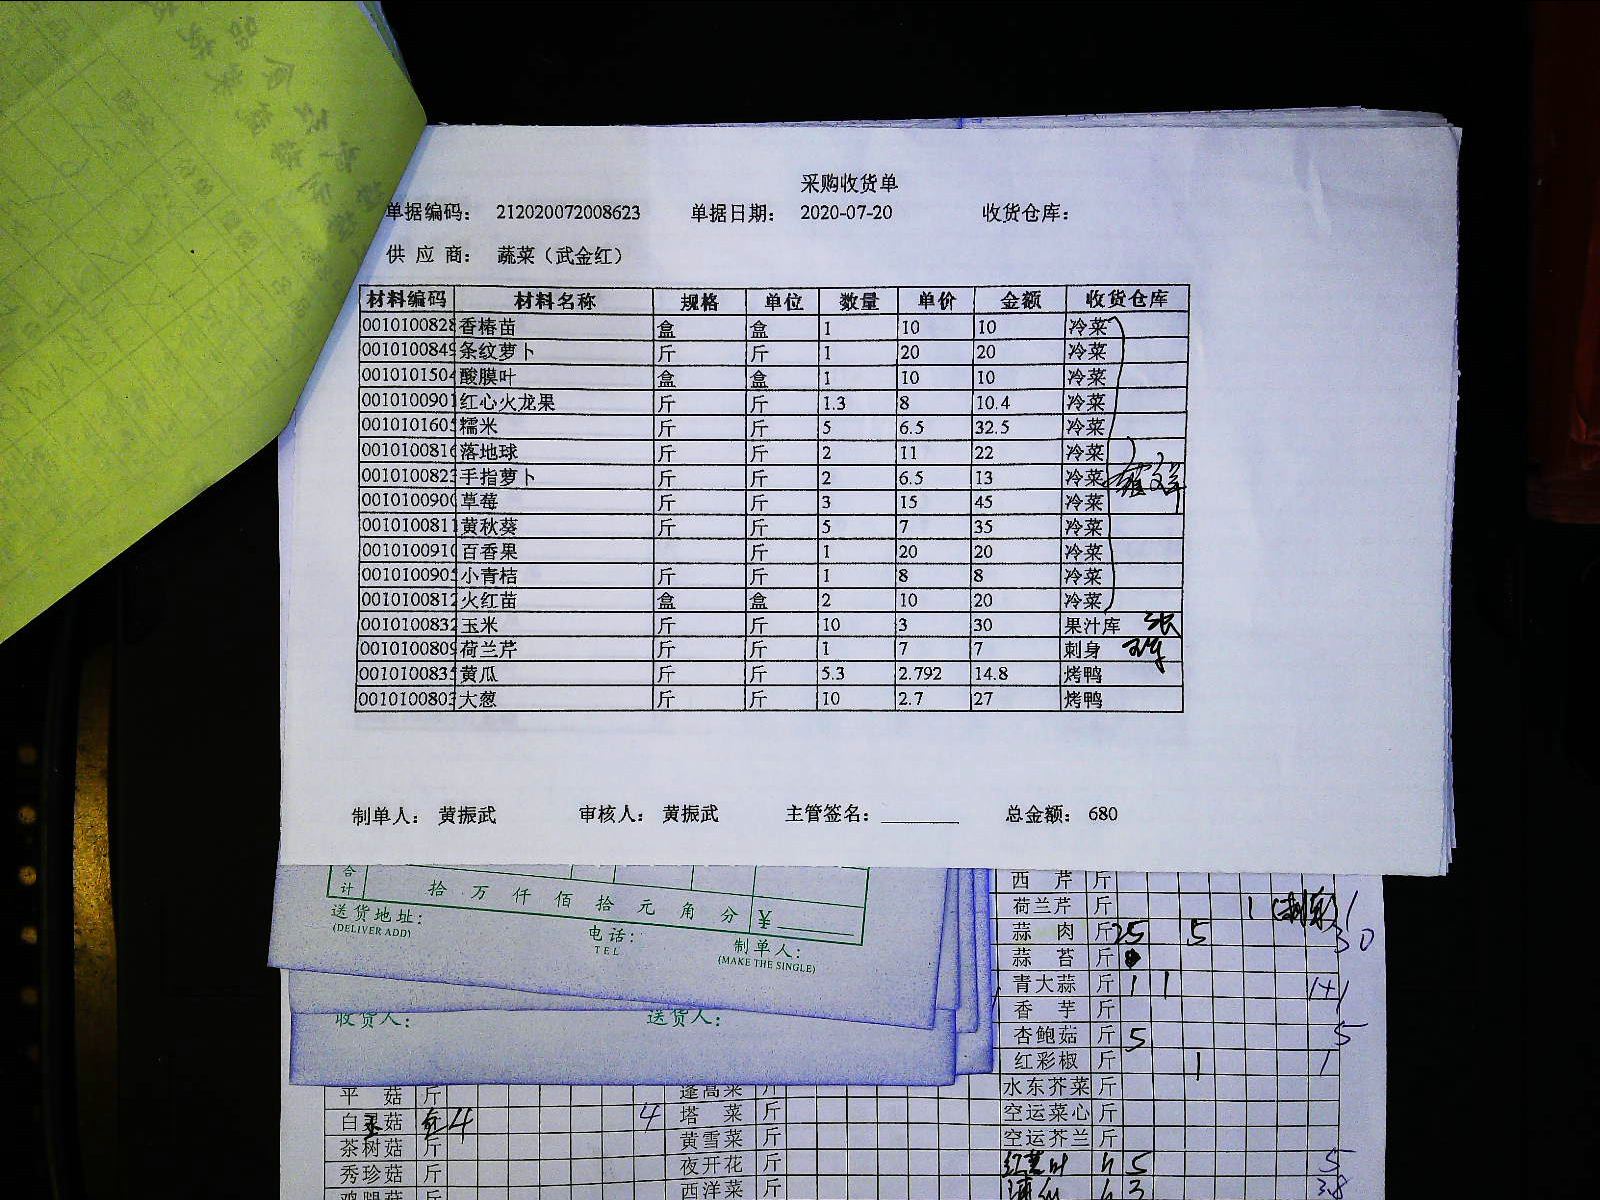 采购收货单
单据编码： 212020072008623 单据日期： 2020-07-20 收货仓库：
供 应 商： 蔬菜（武金红）
材料编码 材料名称 规格 单位 数量 单价 金额 收货仓库
0010100828 香椿苗 盒 盒 1 10 10 冷菜
0010100849 条纹萝卜 斤 斤 1 20 20 冷菜
0010101504 酸膜叶 盒 盒 1 10 10 冷菜
0010100901 红心火龙果 斤 斤 1.3 8 10.4 冷菜
001010160 糯米 斤 斤 5 6.5 32.5 冷菜
0010100816 落地球 斤 斤 2 11 22 冷菜
001010082 手指萝卜 斤 斤 2 6.5 13 冷菜
0010100900 草莓 斤 斤 3 15 45 冷菜
0010100811 黄秋葵 斤 斤 5 7 35 冷菜
0010100910 百香果 斤 1 20 20 冷菜
001010090 小青桔 斤 斤 1 8 8 冷菜
0010100812 火红苗 盒 盒 2 10 20 冷菜
0010100832 玉米 斤 斤 10 3 30 果汁库
0010100809 荷兰芹 斤 斤 1 7 7 刺身
001010083 黄瓜 斤 斤 5.3 2.792 14.8 烤鸭
001010080 大葱 斤 斤 10 2.7 27 烤鸭
制单人： 黄振武 审核人： 黄振武 主管签名： 总金额： 680
合计 拾 万 仟 佰 拾 元 角 分 ¥
送货地址：
(DELIVER ADD)
电话：
TEL
制单人：
(MAKE THE SINGLE)
收货人： 送货人：
西 芹 斤
荷兰芹 斤 1 (刺身) 1
蒜 肉 斤 25 5 30
蒜 苔 斤
青大蒜 斤 1 1 1+1
香 芋 斤
杏鲍菇 斤 5 5
红彩椒 斤 1 1
水东芥菜 斤
空运菜心 斤
空运芥兰 斤
5 5
3 3.8
平 菇 斤 蓬蒿菜 斤
白灵菇 4 4 塔 菜 斤
茶树菇 斤 黄雪菜 斤
秀珍菇 斤 夜开花 斤
鸡腿菇 斤 西洋菜 斤